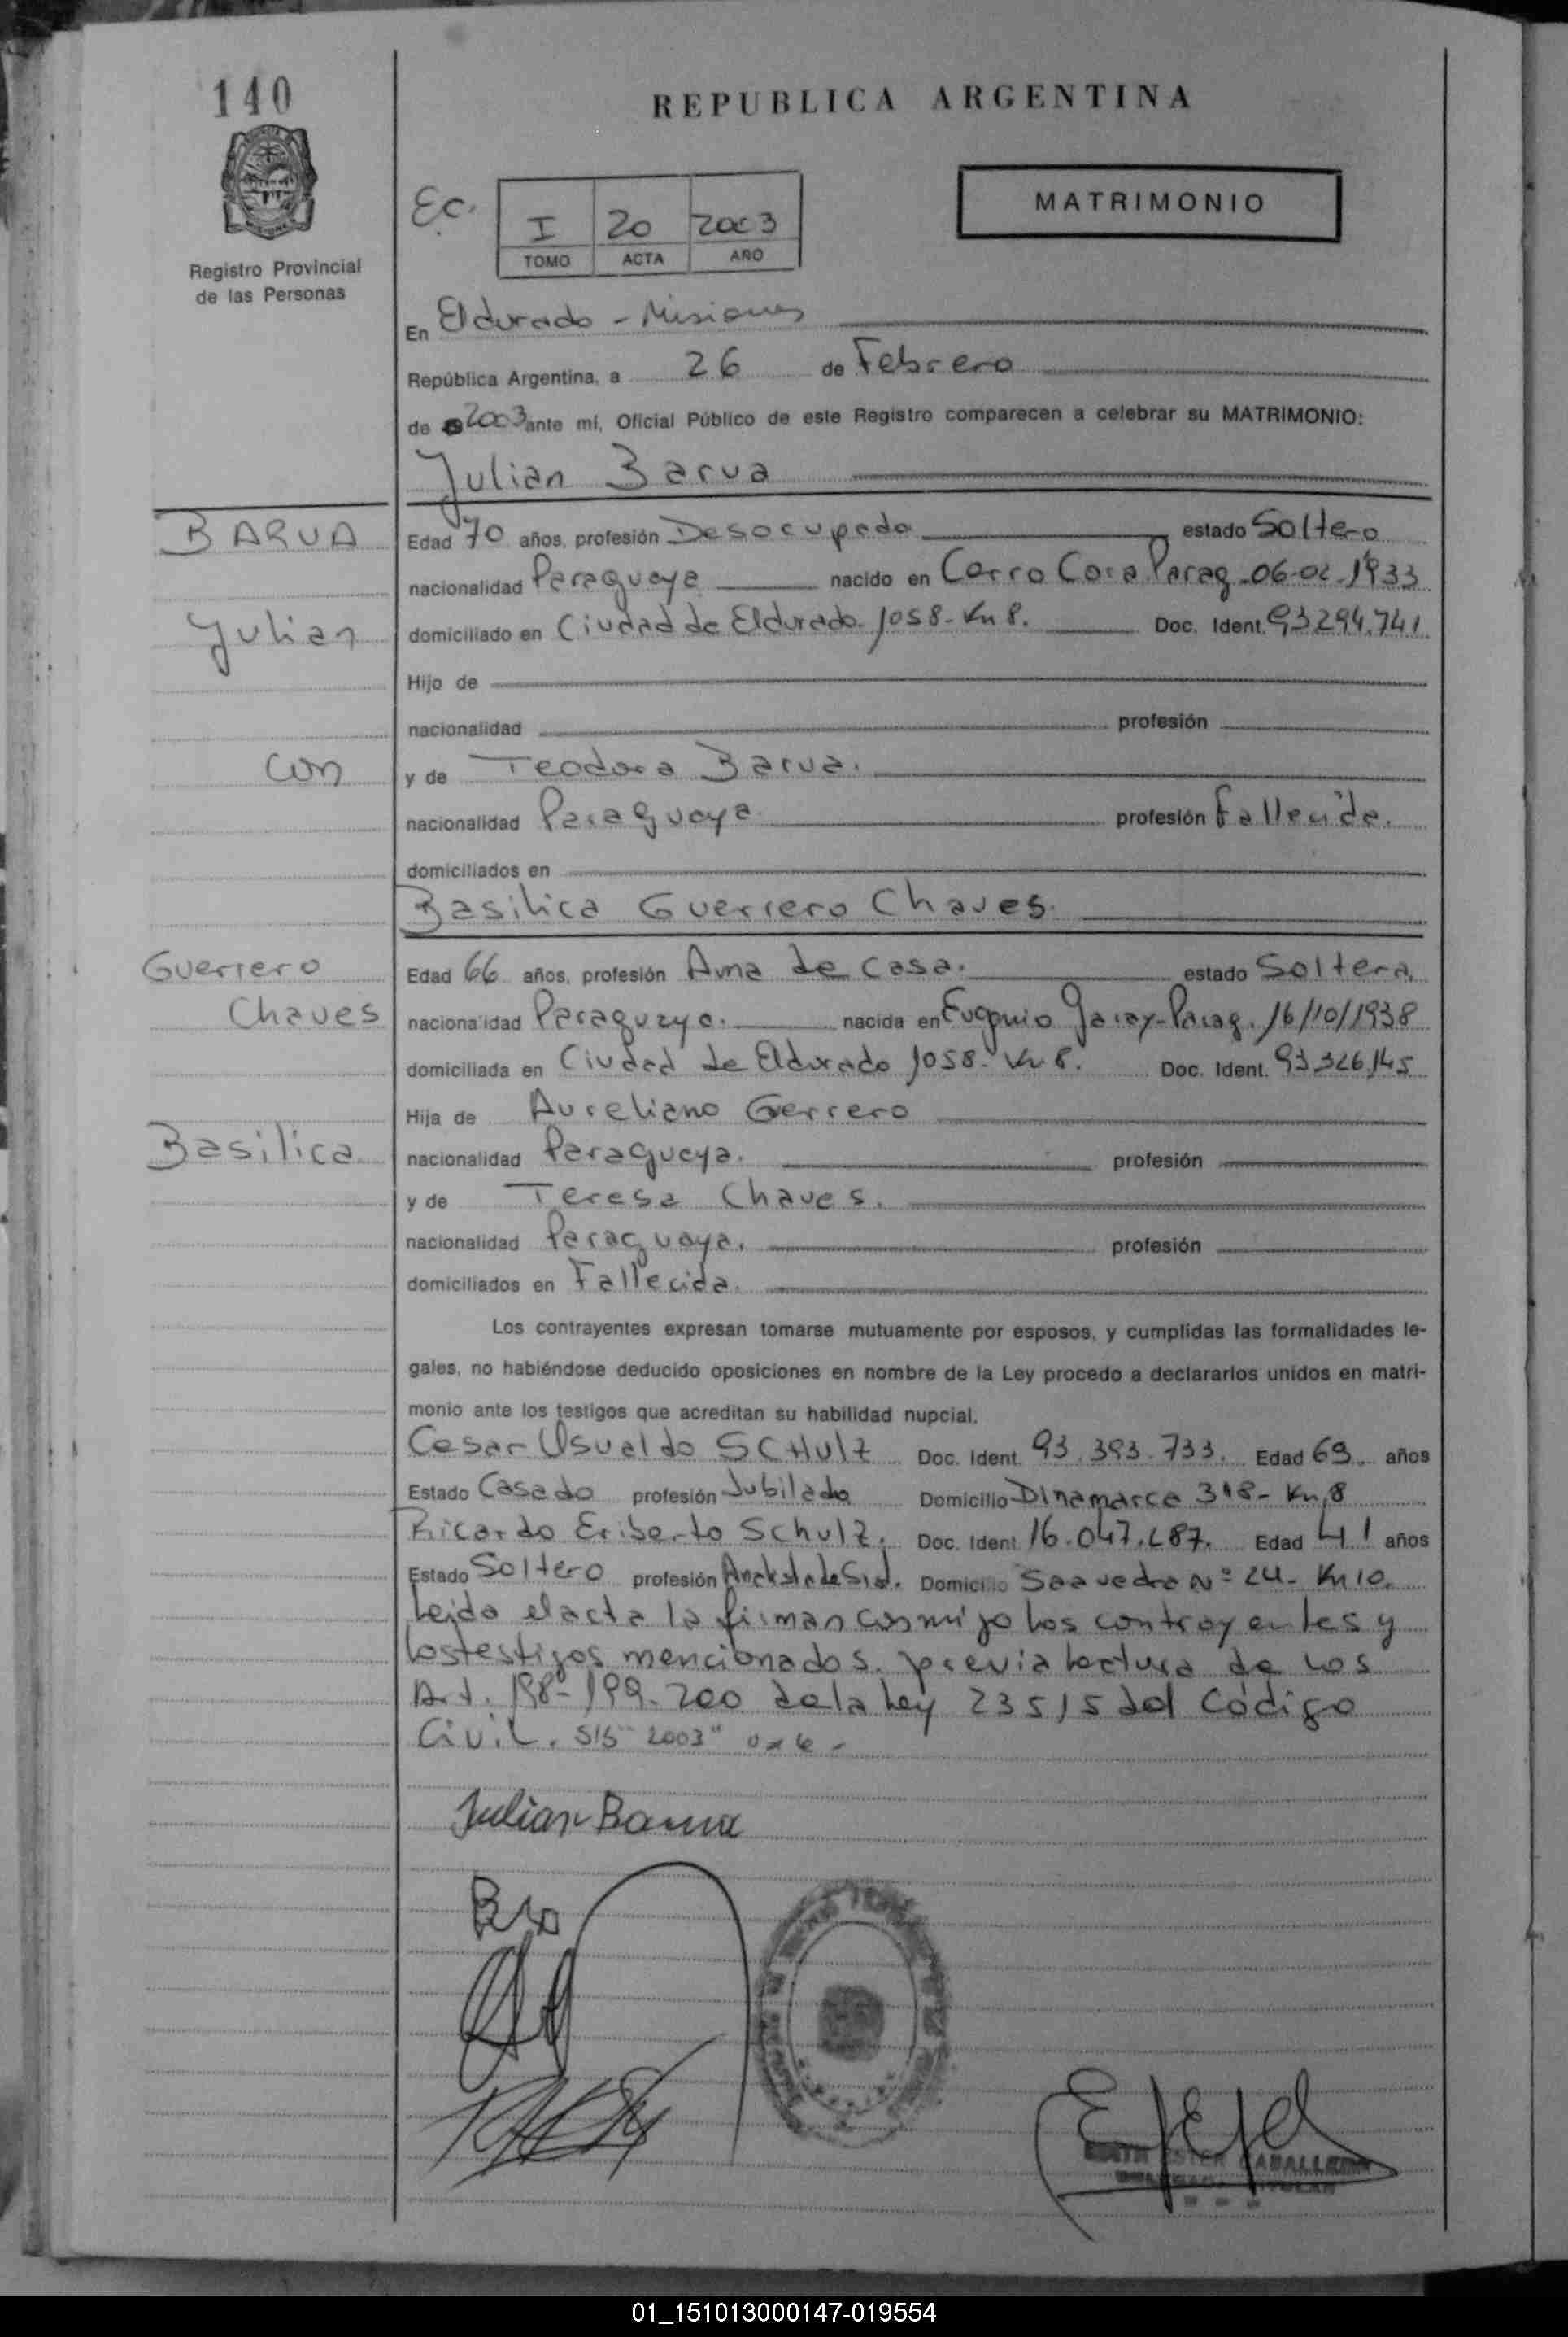 140
REPUBLICA ARGENTINA
MATRIMONIO
Ec.
I 20 2003
TOMO ACTA AÑO
Registro Provincial
de las Personas
En Eldorado - Misiones
República Argentina, a 26 de Febrero
de 2003 ante mí, Oficial Público de este Registro comparecen a celebrar su MATRIMONIO:
Julian Barua
BARUA
Edad 70 años, profesión Desocupado estado Soltero
nacionalidad Paraguaya nacido en Cerro Cora Parag. 06-02-1933
Julian
domiciliado en Ciudad de Eldorado. 1058-Km 8. Doc. Ident. 93294.741
Hijo de
nacionalidad profesión
Con
y de Teodora Barua.
nacionalidad Paraguaya profesión Fallecida.
domiciliados en
Basilica Guerrero Chaves.
Guerrero
Edad 66 años, profesión Ama de casa. estado Soltera.
Chaves
nacionalidad Paraguaya. nacida en Eugenio Garay-Parag. 16/10/1938
domiciliada en Ciudad de Eldorado 1058-Km 8. Doc. Ident. 93.326.145
Hija de Aureliano Gerrero
Basilica
nacionalidad Paraguaya. profesión
y de Teresa Chaves.
nacionalidad Paraguaya. profesión
domiciliados en Fallecida.
Los contrayentes expresan tomarse mutuamente por esposos, y cumplidas las formalidades le-
gales, no habiéndose deducido oposiciones en nombre de la Ley procedo a declararlos unidos en matri-
monio ante los testigos que acreditan su habilidad nupcial.
Cesar Osualdo SCHulz Doc. Ident. 93.393.733. Edad 69 años
Estado Casado profesión Jubilado Domicilio Dinamarca 318- Km 8
Ricardo Eriberto Schulz. Doc. Ident. 16.047.287. Edad 41 años
Estado Soltero profesión Analista de Sist. Domicilio Saavedra Nº 24- Km 10.
Leida el acta la firman conmigo los contrayentes y
los testigos mencionados. previa lectura de los
Art. 198-199-200 de la Ley 23515 del Código
Civil. S/B "2003"
Julian Barua
CABALLERO
01_151013000147-019554